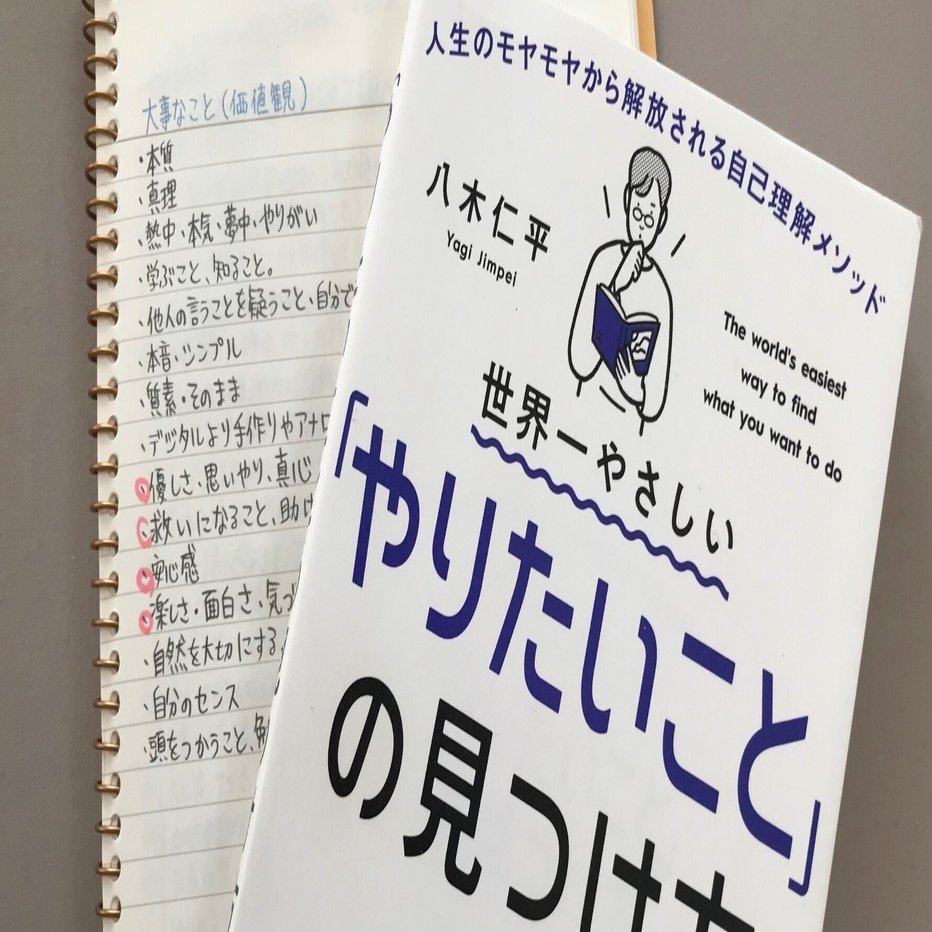 大事なこと(価値観)
・本質
・真理
・熱中・本気・夢中・やりがい
・学ぶこと、知ること。
・他人の言うことを疑うこと、自分で
・本音・シンプル
・質素・そのまま
・デジタルより手作りやアナロ
・優しさ、思いやり、真心
・救いになること、助け
・安心感
・楽しさ・面白さ、気づ
・自然を大切にする。
・自分のセンス
・頭をつかうこと、
人生のモヤモヤから解放される自己理解メソッド
八木仁平
Yagi Jimpei
The world's easiest
way to find
what you want to do
世界一やさしい
「やりたいこと」
の見つけ方